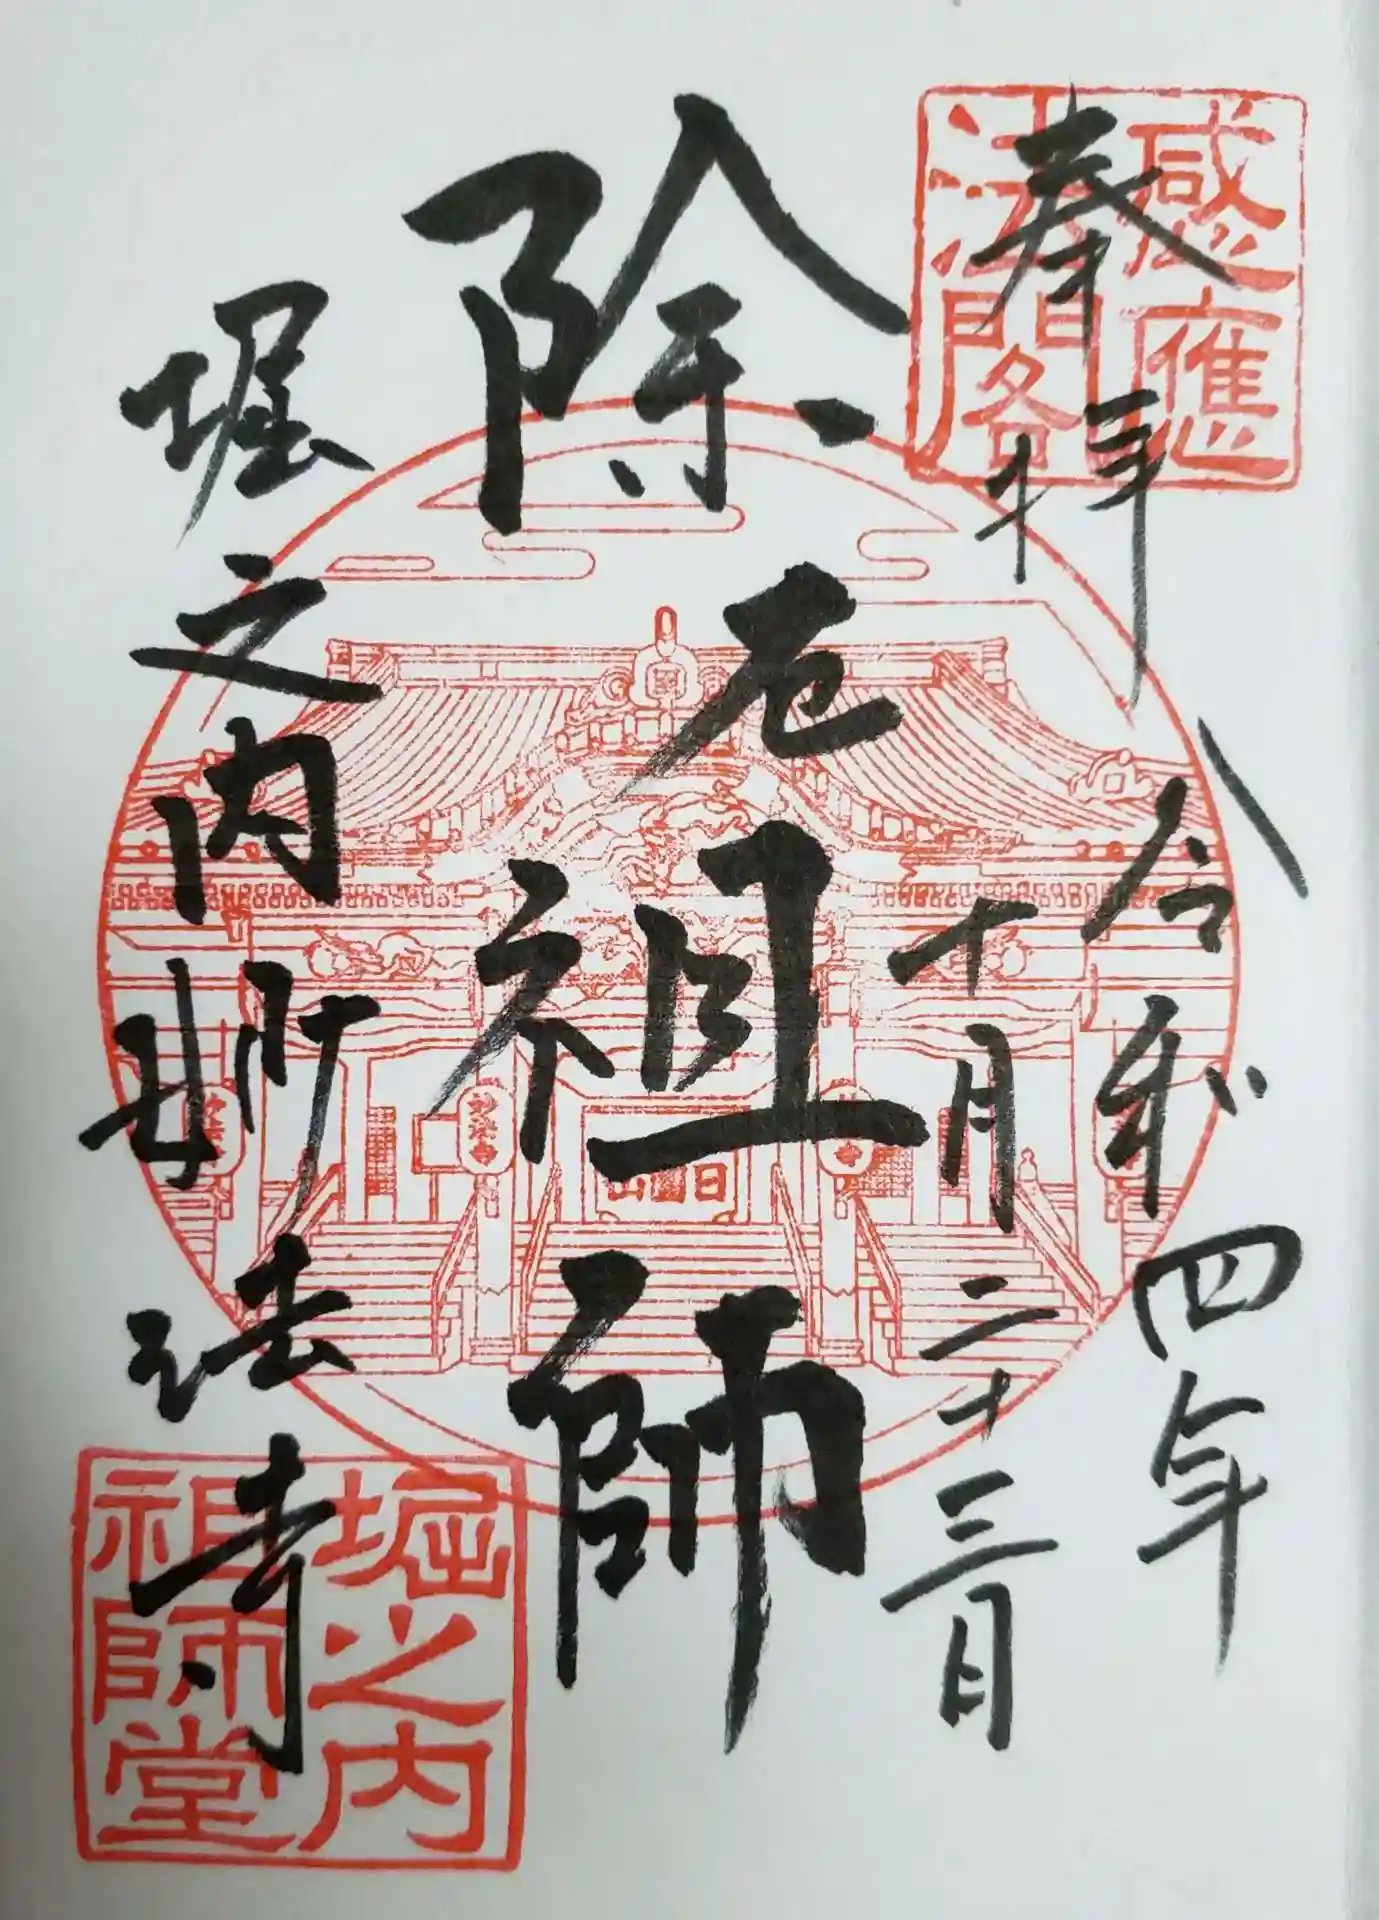 感應
法閣
奉拝
令和四年
十月二十三日
除厄祖師
堀之内妙法寺
妙法寺
日圓山
堀之内
祖師堂